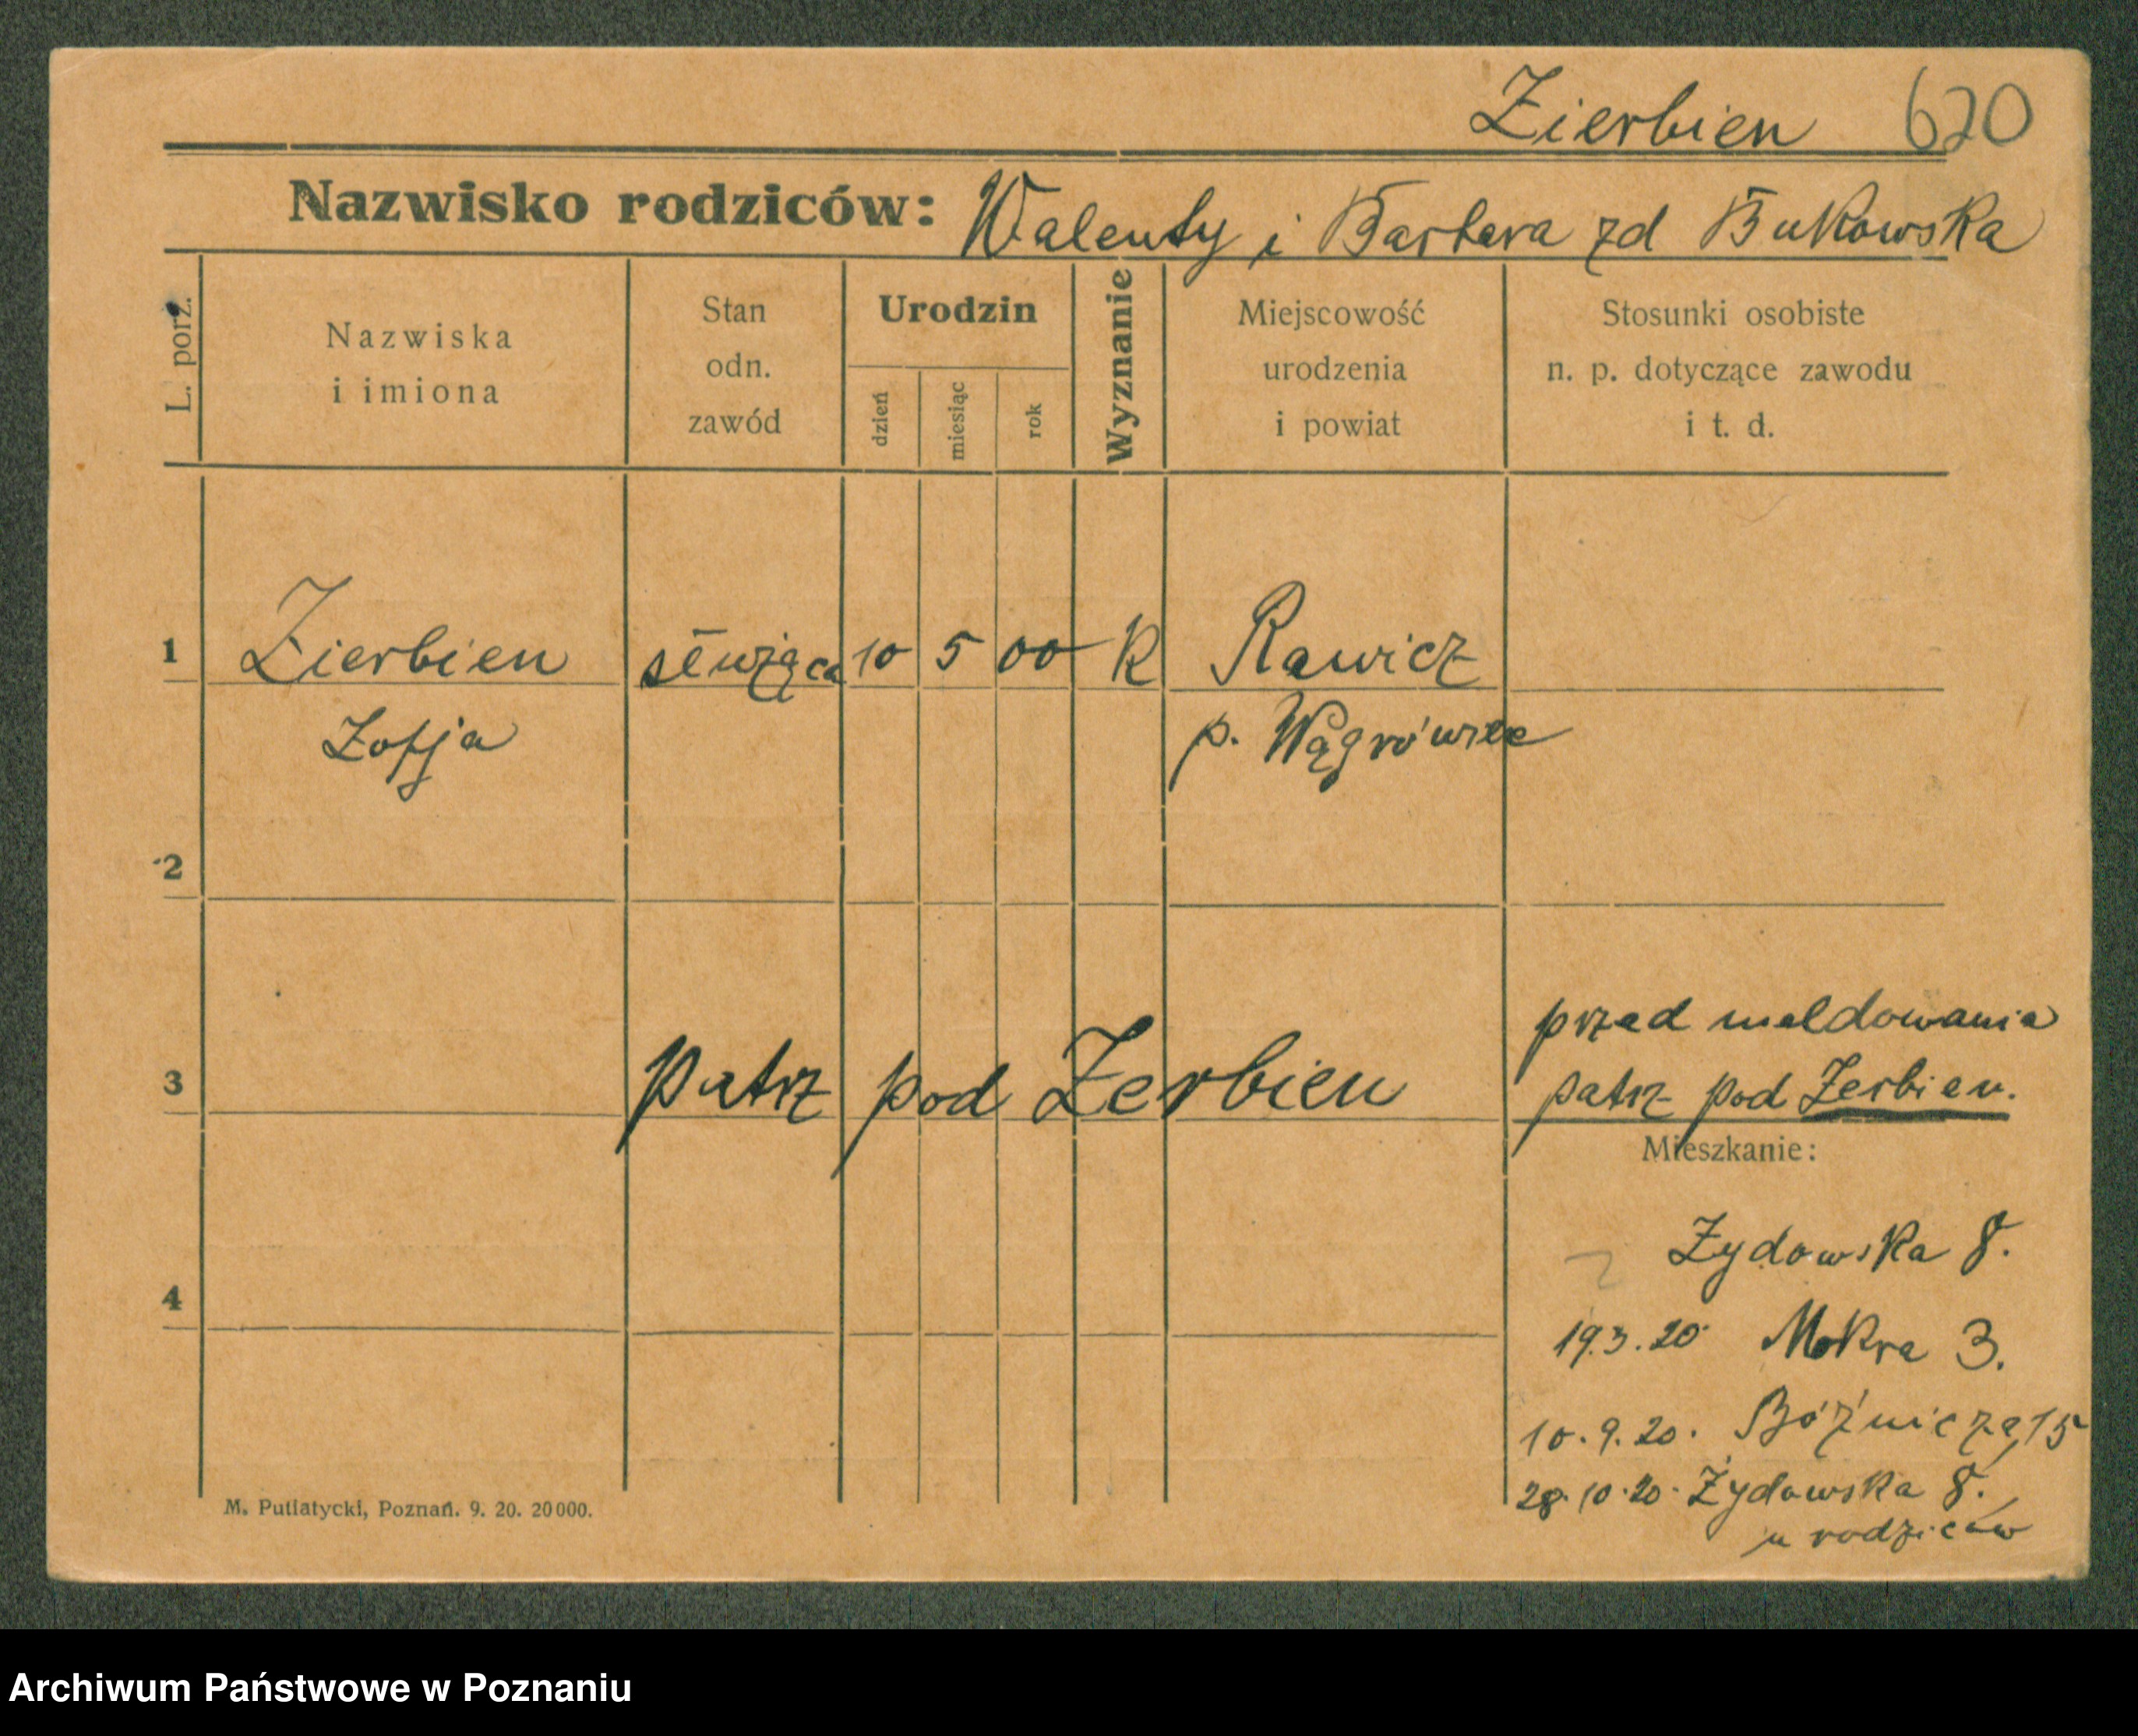 Zierbien 620
Nazwisko rodziców: Walenty i Barbara zd Bukowska
L. porz.
Nazwiska
i imiona
Stan
odn.
zawód
Urodzin
dzień
miesiąc
rok
Wyznanie
Miejscowość
urodzenia
i powiat
Stosunki osobiste
n. p. dotyczące zawodu
i t. d.
1 Zierbien służąca 10 5 00 K Rawicz
Zofja p.
2
przed meldowania
3 patrz pod Zerbien patrz pod Zerbien.
Mieszkanie:
Zydowska 8.
4 19.3.20 Mokra 3.
10.9.20. Bóżnicza 15
28.10.20. Żydowska 8.
u rodziców
M. Putiatycki, Poznań. 9. 20. 20 000.
Archiwum Państwowe w Poznaniu